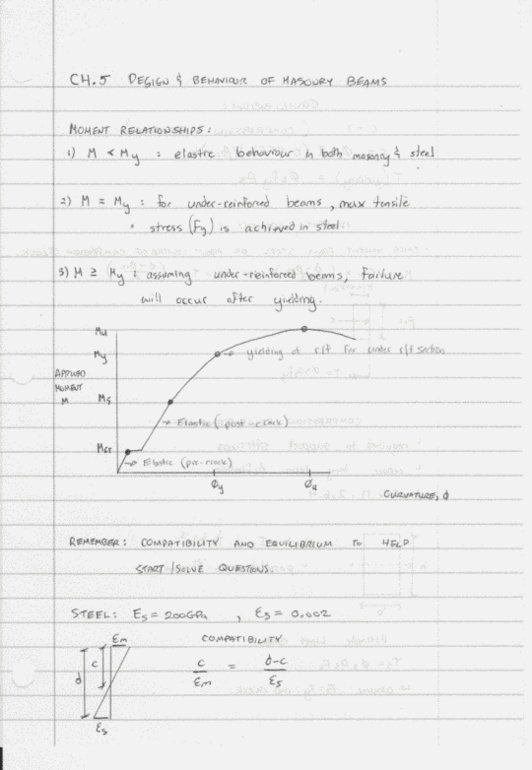 CH.5 DESIGN & BEHAVIOUR OF MASONRY BEAMS
MOMENT RELATIONSHIPS:
1) M < My : elastic behaviour in both masonry & steel
2) M = My : for under-reinforced beams, max tensile
stress (Fy) is achieved in steel.
3) M ≥ My : assuming under-reinforced beams, failure
will occur after yielding.
Mu
My
yielding of r/f for under r/f section
APPLIED
MOMENT
M
Ms
→ Elastic (post-crack)
Mcr
→ Elastic (pre-crack)
Øy
Øu
CURVATURE, Ø
REMEMBER: COMPATIBILITY AND EQUILIBRIUM TO HELP
START/SOLVE QUESTIONS.
STEEL: Es = 200GPa , Es = 0.002
Em
COMPATIBILITY
d
c
c/Em = d-c/Es
Es